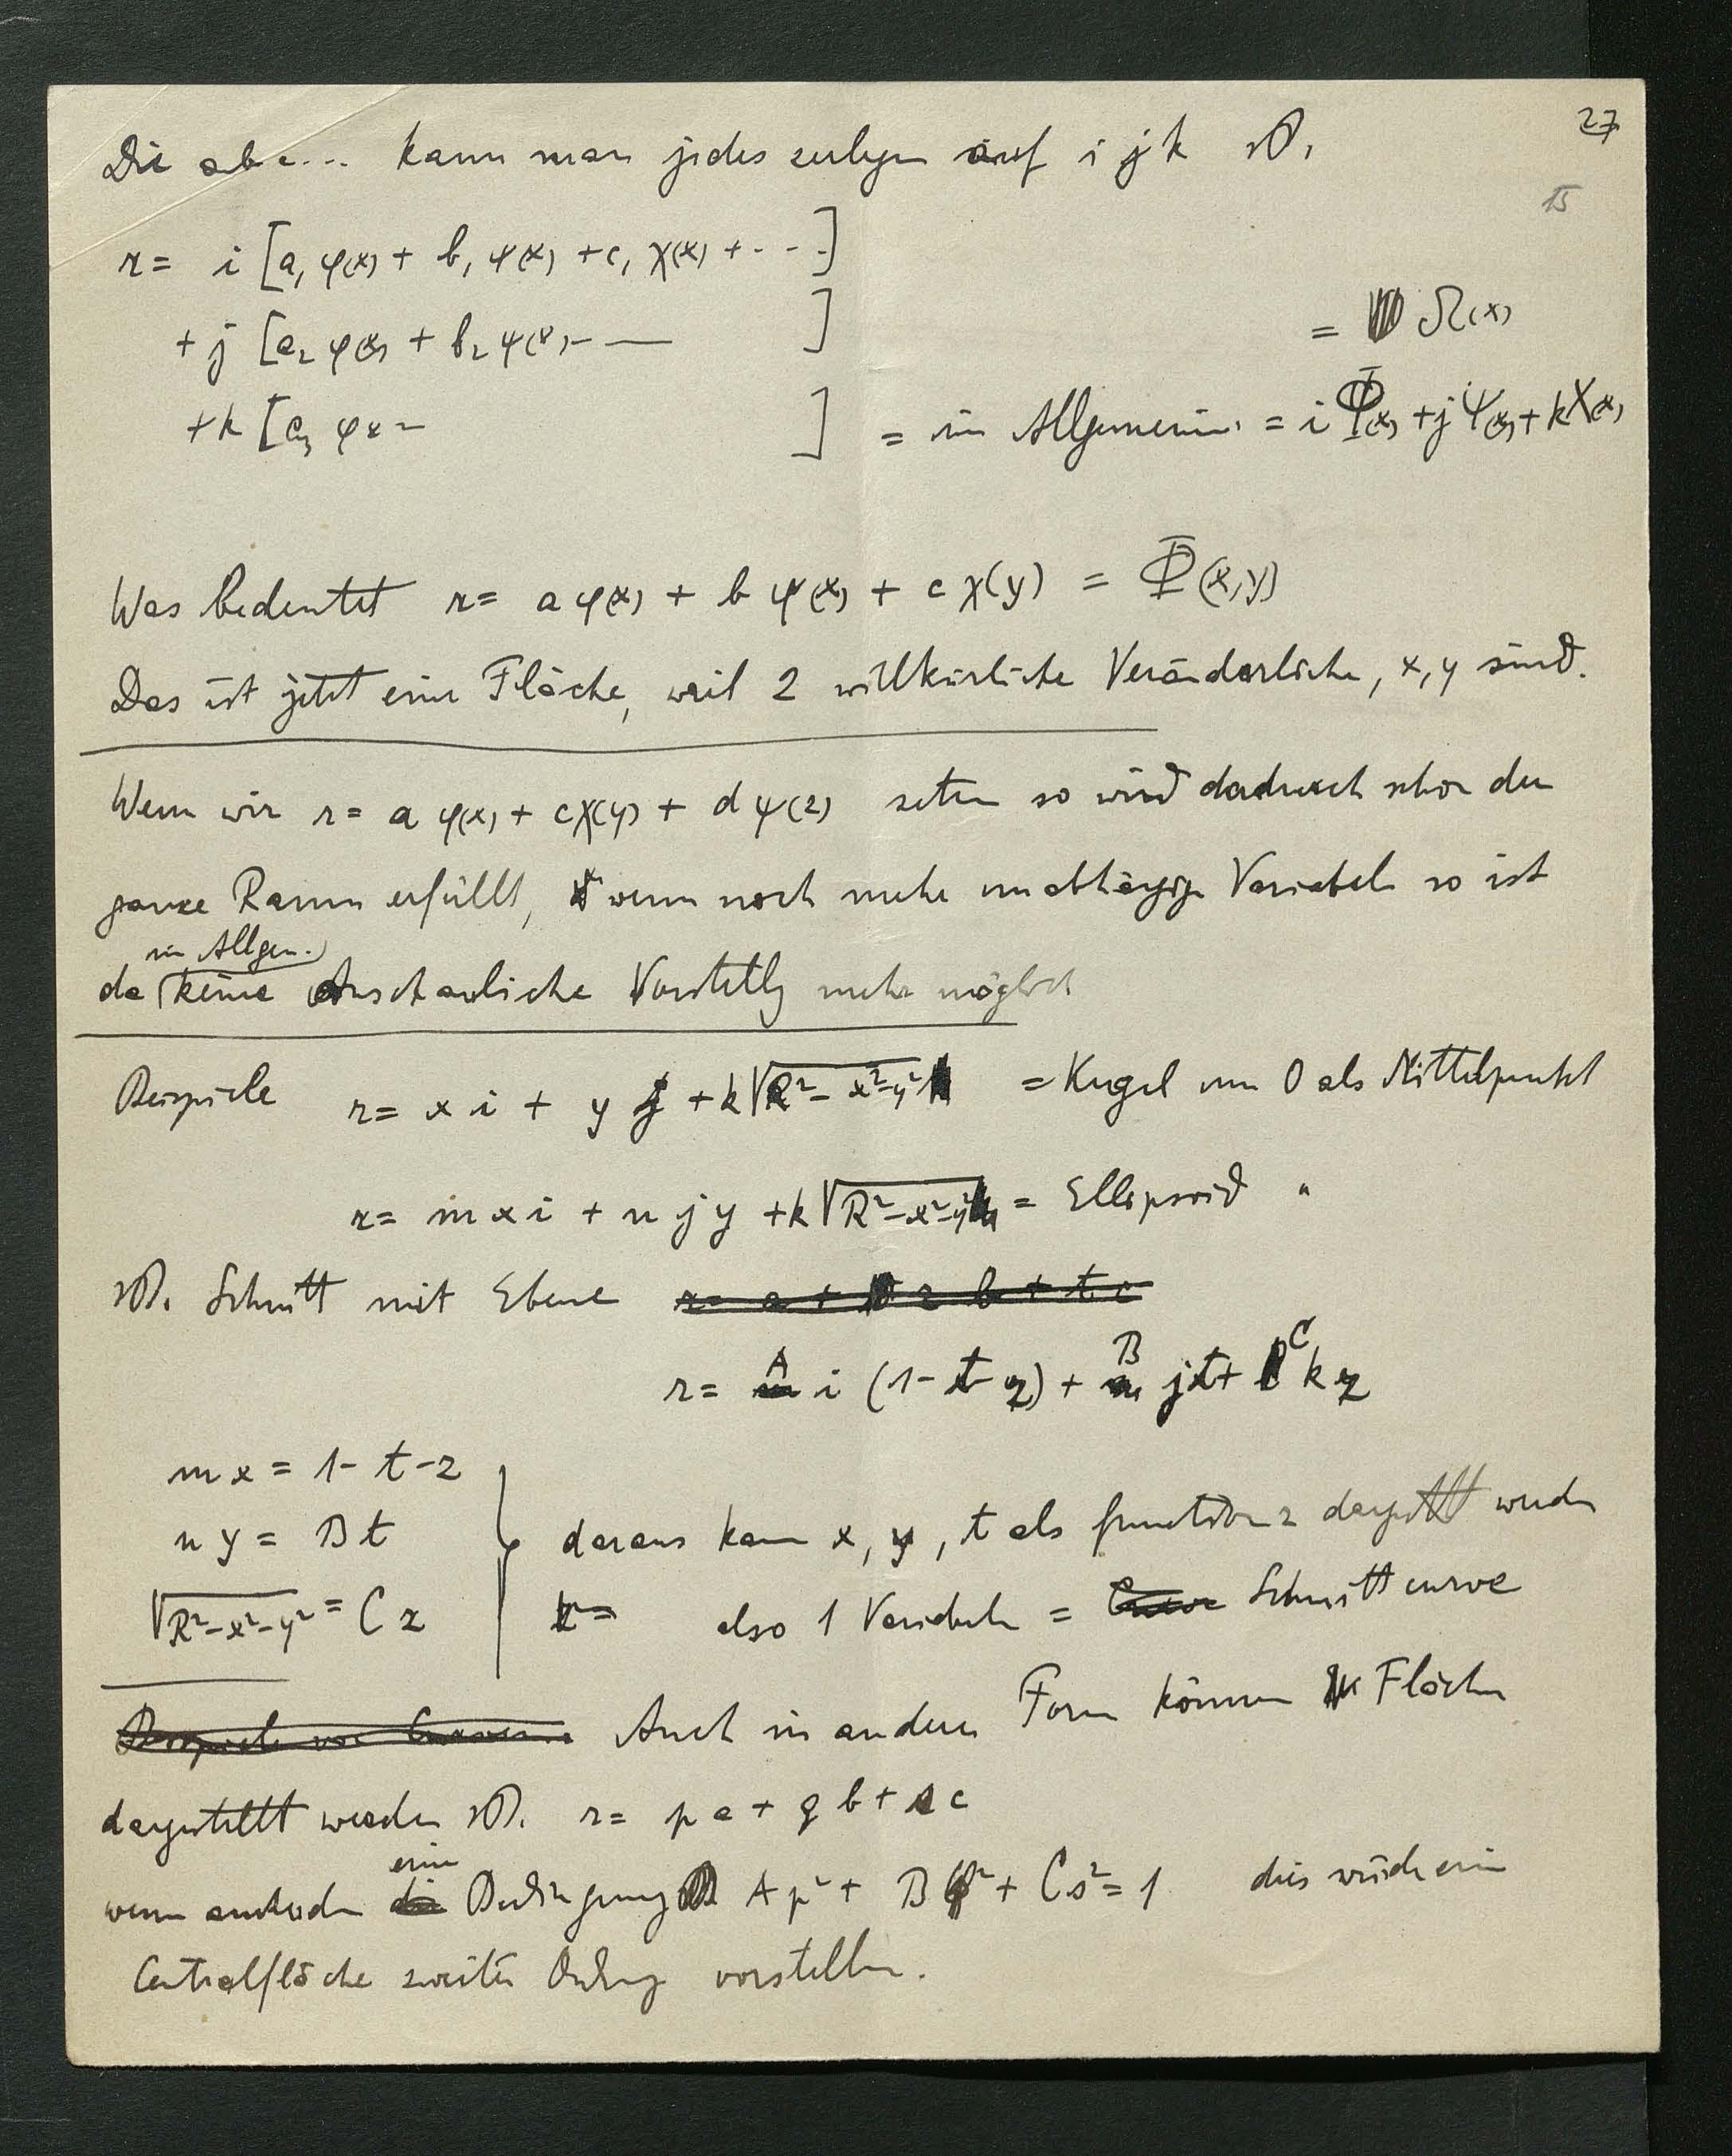 27
Die abc... kann man jedes zerlegen auf i j k
15
r = i [a₁ φ(x) + b₁ ψ(x) + c₁ χ(x) + ...]
+ j [a₂ φ(x) + b₂ ψ(x) -- ]
= Ω(x)
+ k [a₃ φx - ] = im Allgemeinen = i Φ(x) + j Ψ(x) + k X(x)
Was bedeutet r = a φ(x) + b ψ(x) + c χ(y) = Φ(x,y)
Das ist jetzt eine Fläche, weil 2 willkürliche Veränderliche, x, y sind.
Wenn wir r = a φ(x) + c χ(y) + d ψ(z) setzen so wird dadurch schon der
ganze Raum erfüllt, wenn noch mehr unabhängige Variabeln so ist
im Allgem.
da keine Anschauliche Vorstellg mehr möglich
Beispiele r = x i + y j + k √R²-x²-y² = Kugel um 0 als Mittelpunkt
r = m x i + n j y + k √R²-x²-y² = Ellipsoid "
Schnitt mit Ebene r = a + z b + t c
r = A i (1 - t - z) + B j t + C k z
m x = 1 - t - z
n y = B t
daraus kann x, y, t als function z dargestellt werden
√R²-x²-y² = C z
r = also 1 Variabeln = Schnittcurve
Beispiele von Curven. Auch in anderer Form können Flächen
dargestellt werden r = p a + q b + s c
eine
wenn die Bedingung A p² + B q² + C s² = 1 dies würde eine
Centralfläche zweiter Ordng vorstellen.